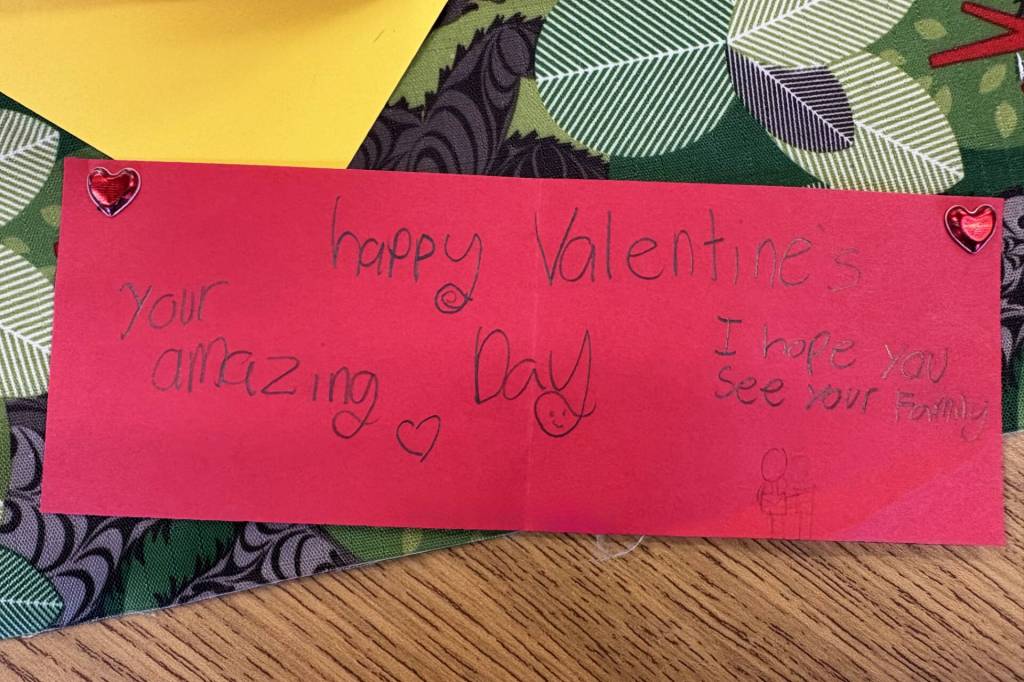 happy Valentine's
Day
your
amazing
I hope you
See your Family